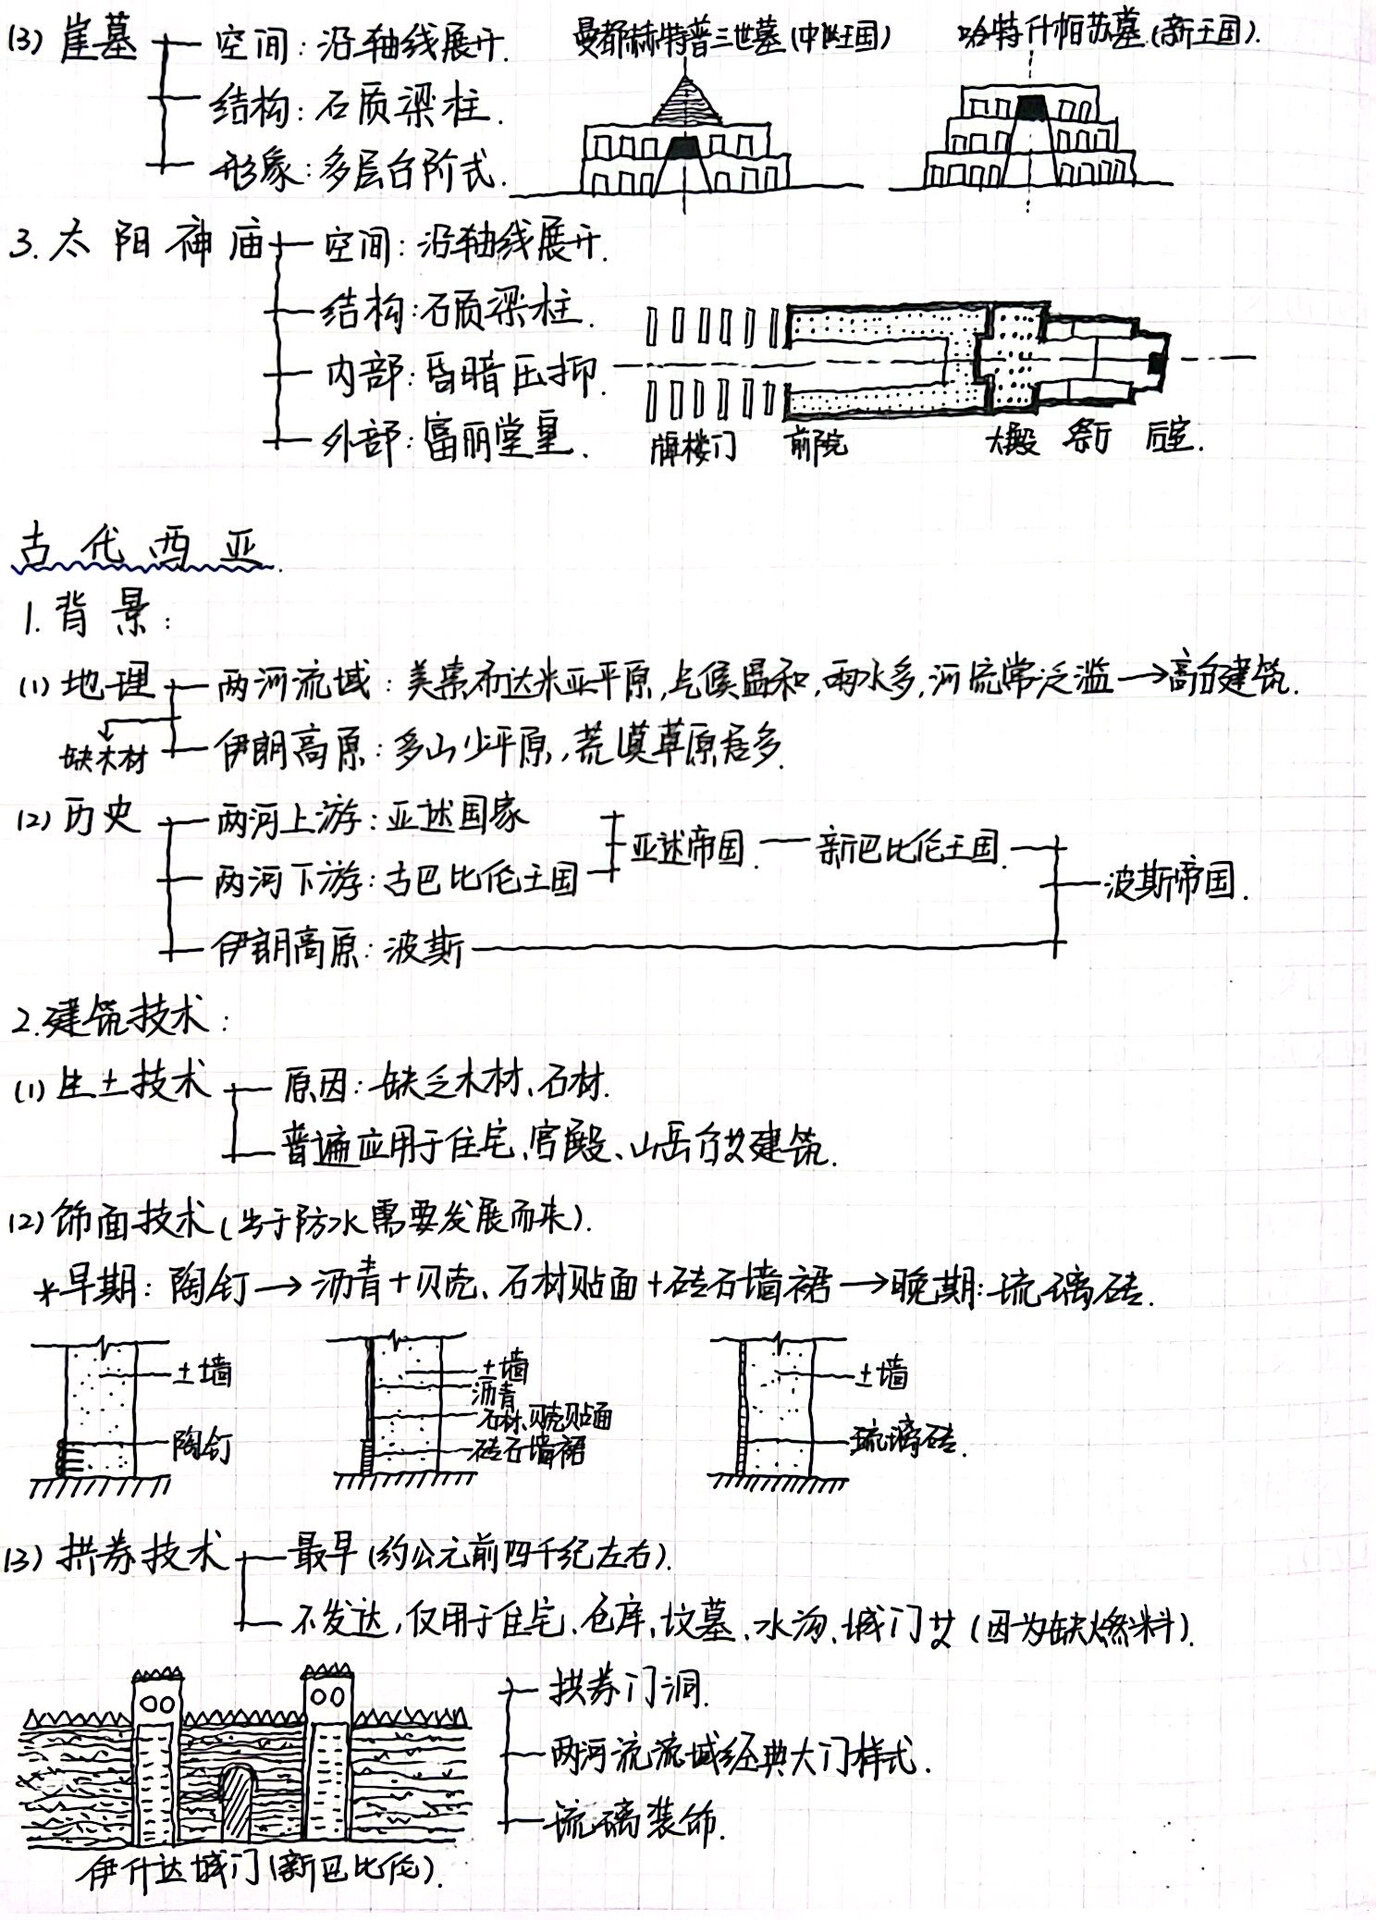 (3) 崖墓 空间:沿轴线展开. 曼都赫特普三世墓(中王国) 哈特什帕苏墓.(新王国).
结构:石质梁柱.
形象:多层台阶式.
3.太阳神庙 空间:沿轴线展开.
结构:石质梁柱.
内部:昏暗压抑.
外部:富丽堂皇. 牌楼门 前院 大殿 祭厅 后室.
古代西亚.
1.背景:
(1) 地理 两河流域:美索布达米亚平原,气候温和,雨水多,河流常泛滥→高台建筑.
缺木材 伊朗高原:多山少平原,荒漠草原居多.
(2) 历史 两河上游:亚述国家
亚述帝国. 新巴比伦王国.
两河下游:古巴比伦王国 波斯帝国.
伊朗高原:波斯
2.建筑技术:
(1) 生土技术 原因:缺乏木材、石材.
普遍应用于住宅、宫殿、山岳台建筑.
(2) 饰面技术(出于防水需要发展而来).
*早期:陶钉→沥青+贝壳、石材贴面+砖石墙裙→晚期:琉璃砖.
土墙 土墙 土墙
沥青
石材、贝壳贴面
陶钉 砖石墙裙 琉璃砖.
(3) 拱券技术 最早(约公元前四千纪左右).
不发达,仅用于住宅、仓库、坟墓、水沟、城门廿(因为缺燃料).
拱券门洞.
两河流流域经典大门样式.
琉璃装饰.
伊什达城门(新巴比伦).